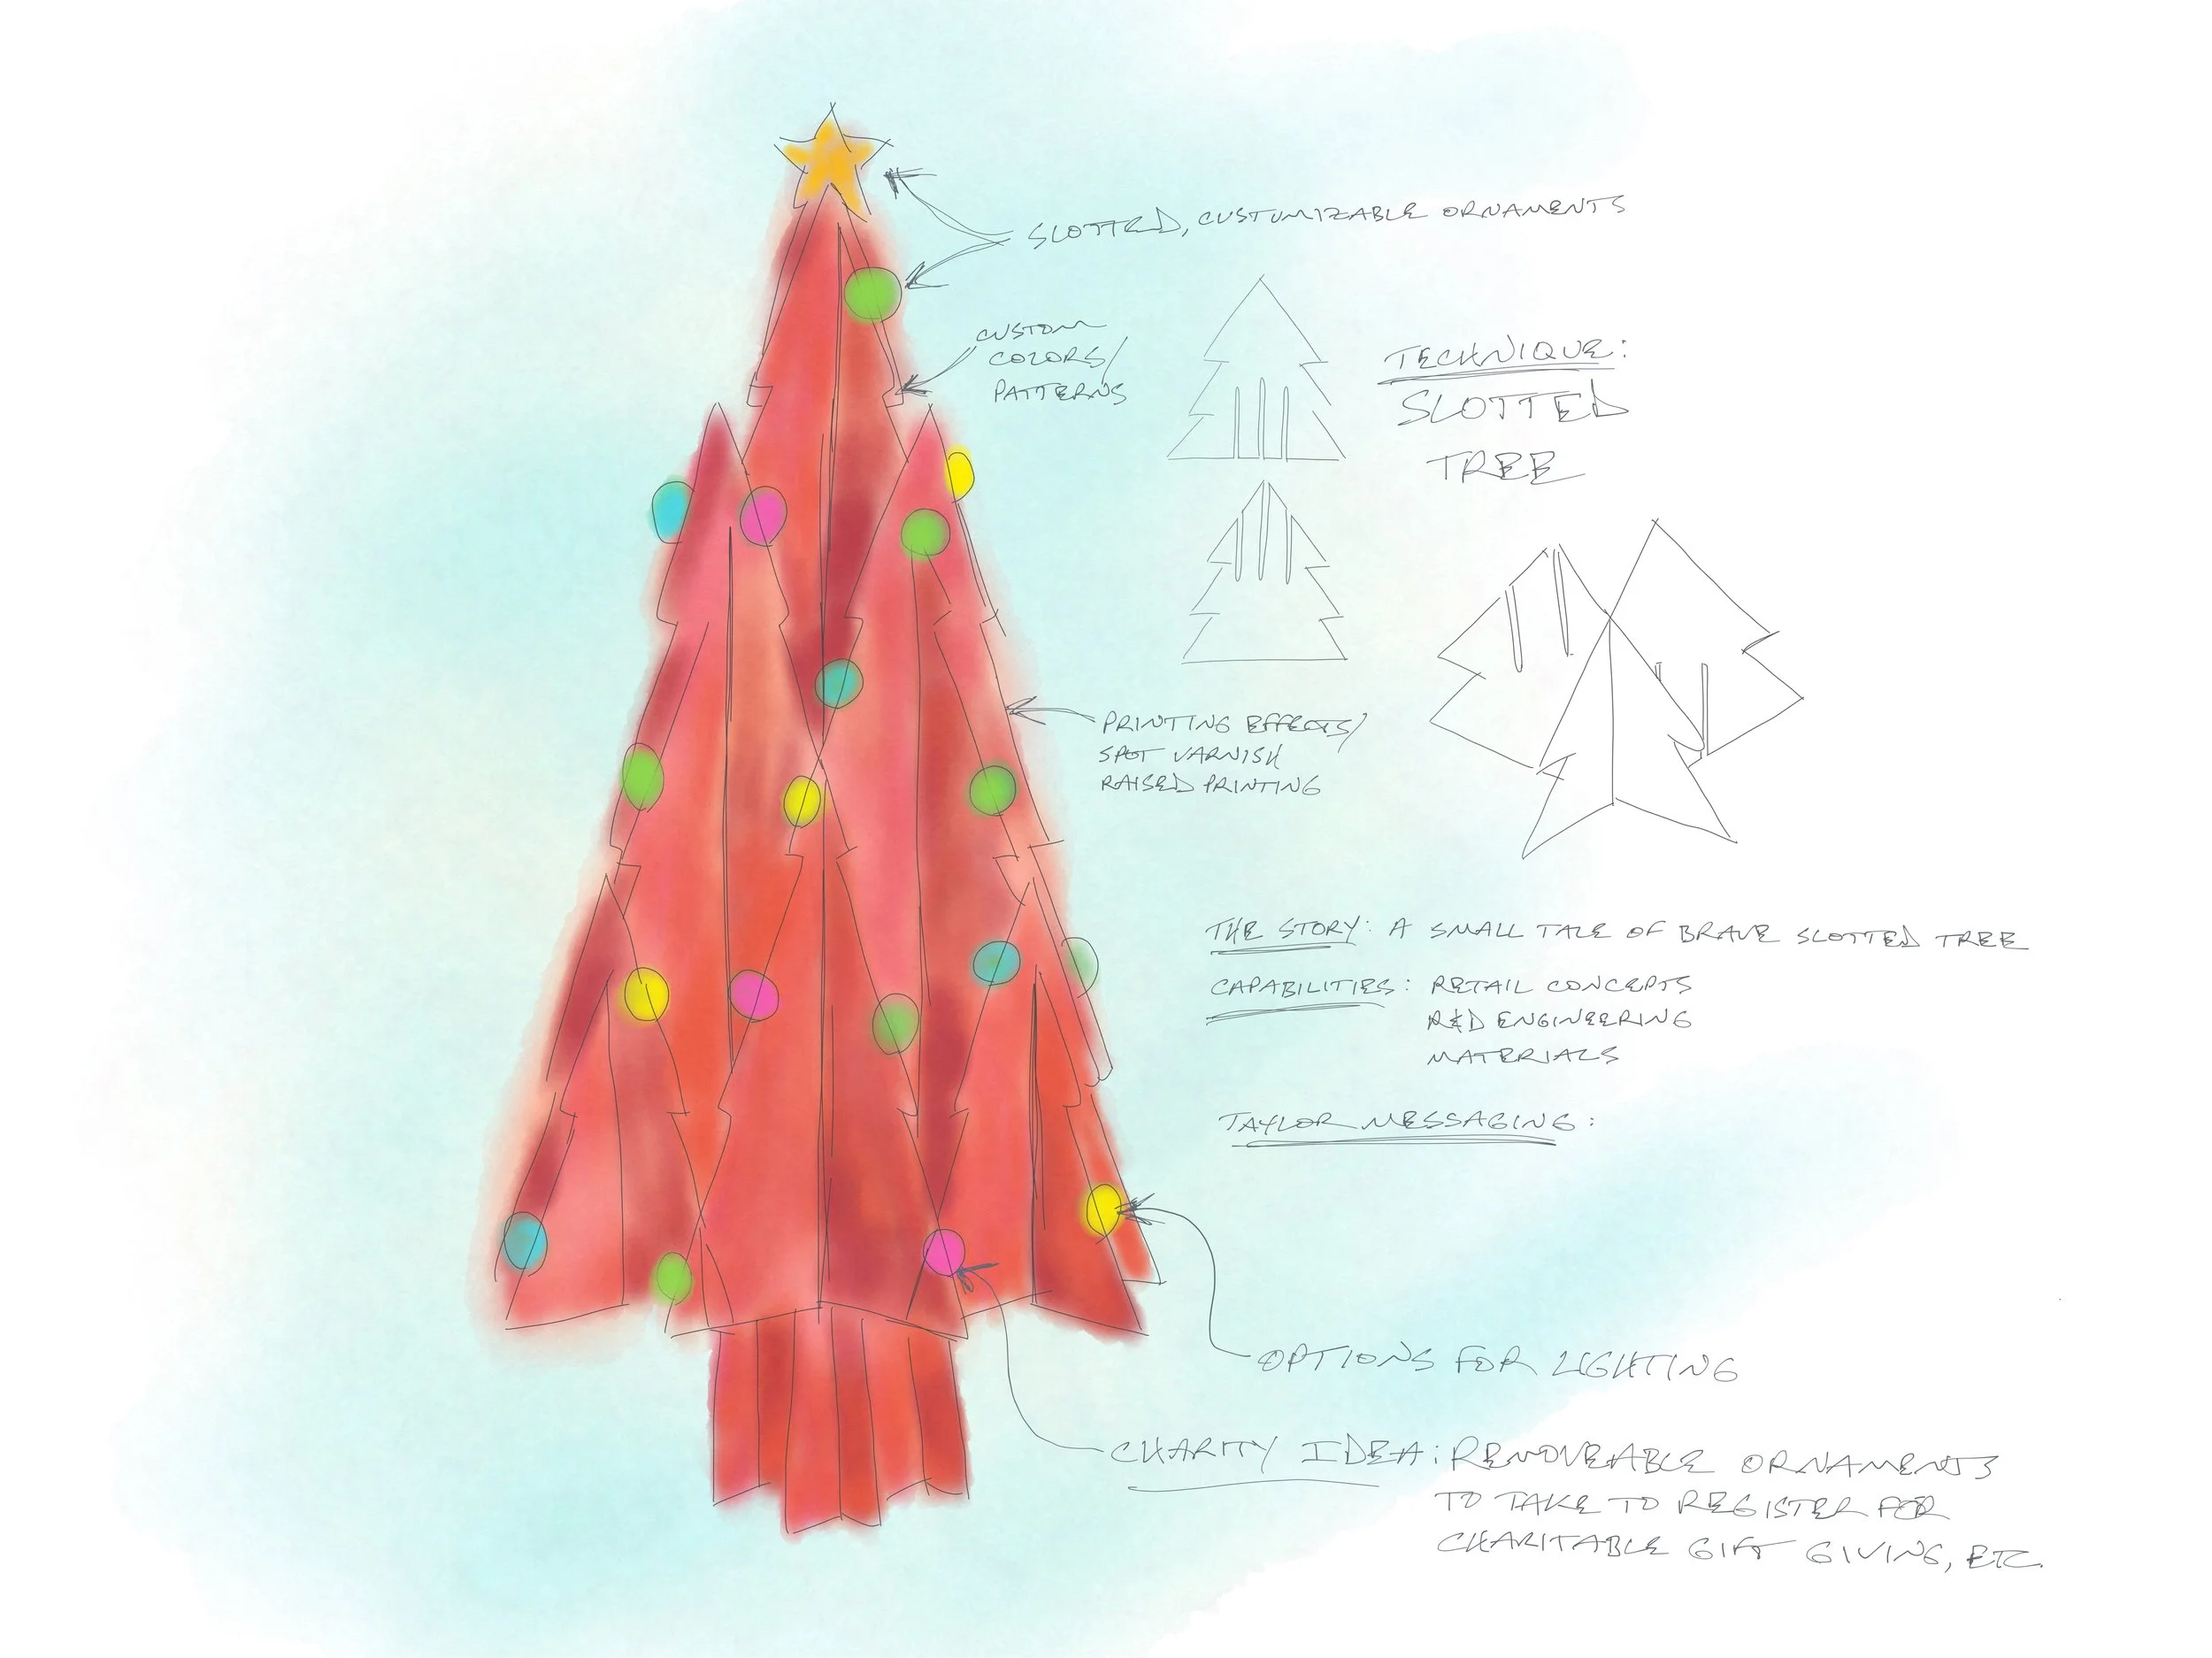 SLOTTED, CUSTUMIZABLE ORNAMENTS
CUSTOM
COLORS/
PATTERNS
TECHNIQUE:
SLOTTED
TREE
PRINTING EFFECTS/
SPOT VARNISH
RAISED PRINTING
THE STORY: A SMALL TALE OF BRAVE SLOTTED TREE
CAPABILITIES: RETAIL CONCEPTS
R&D ENGINEERING
MATERIALS
TAYLOR MESSAGING:
OPTIONS FOR LIGHTING
CHARITY IDEA: REMOVEABLE ORNAMENTS
TO TAKE TO REGISTER FOR
CHARITABLE GIFT GIVING, ETC.